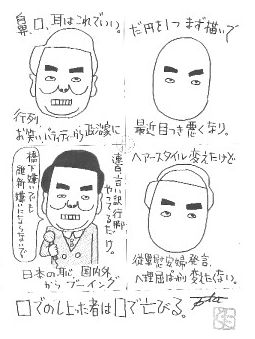 だ円を1つまず描いて
最近目つき悪くなり。
ヘアースタイル変えたけど
従軍慰安婦発言、
へ理屈ばかり変えたくない。
鼻、口、耳はこれでいい。
行列
お笑い、バラエティから政治家に
連日言い訳行脚
やってるだけ。
橋下嫌いでも
維新嫌いにならないで
日本の恥 国内外
からブーイング
口でのし上った者は口で亡びる。